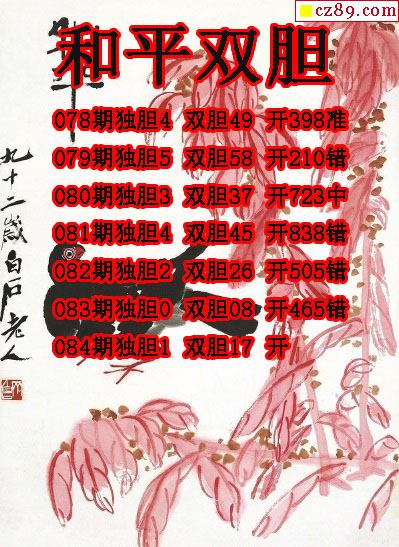 cz89.com
和平双胆
078期独胆4 双胆49 开398准
079期独胆5 双胆58 开210错
080期独胆3 双胆37 开723中
081期独胆4 双胆45 开838错
082期独胆2 双胆26 开505错
083期独胆0 双胆08 开465错
084期独胆1 双胆17 开
九十二岁白石老人